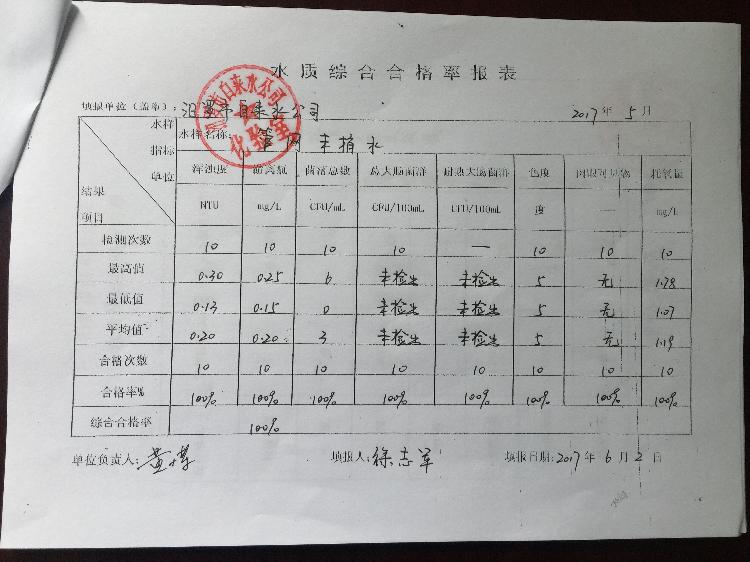 水质综合合格率报表
填报单位（盖章）：汨罗市自来水公司 2017年5月
自来水公司
化验室
水样 水样名称：管网末梢水
指标
单位 浑浊度 游离氯 菌落总数 总大肠菌群 耐热大肠菌群 色度 肉眼可见物 耗氧量
结果
项目 NTU mg/L CFU/mL CFU/100mL CFU/100mL 度 — mg/L
检测次数 10 10 10 10 — 10 10 10
最高值 0.30 0.25 6 未检出 未检出 5 无 1.28
最低值 0.13 0.15 0 未检出 未检出 5 无 1.07
平均值 0.20 0.20 3 未检出 未检出 5 无 1.19
合格次数 10 10 10 10 10 10 10 10
合格率% 100% 100% 100% 100% 100% 100% 100% 100%
综合合格率 100%
单位负责人： 填报人：徐志军 填报日期：2017年6月2日